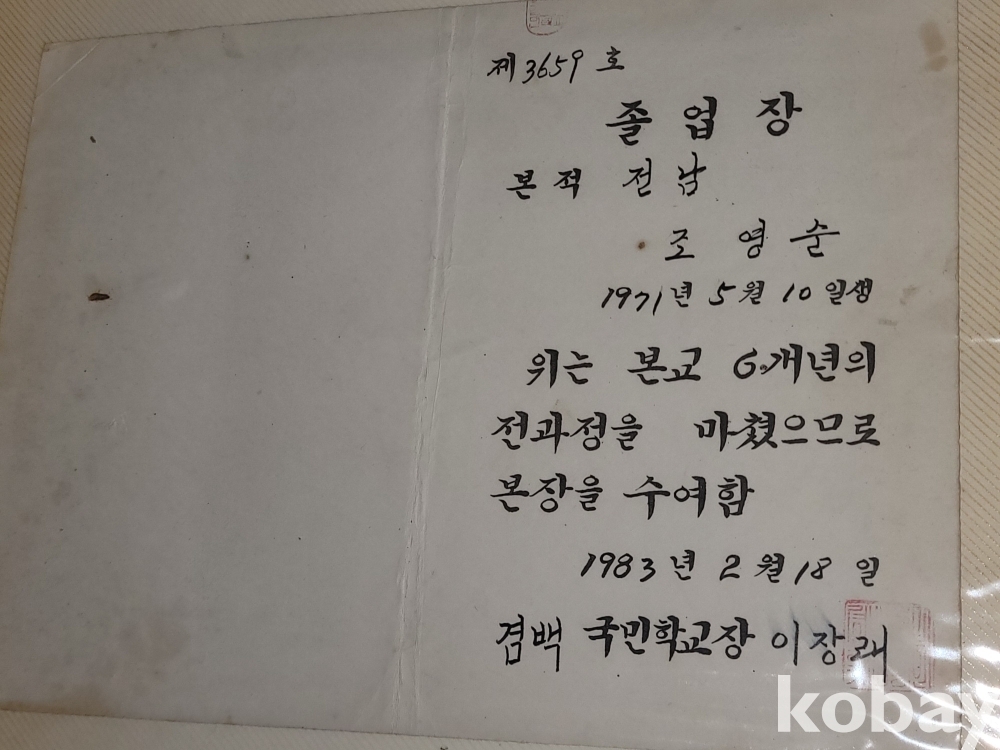 제3659호
졸업장
본적 전남
조영순
1971년 5월 10일생
위는 본교 6개년의
전과정을 마쳤으므로
본장을 수여함
1983년 2월 18일
겸백 국민학교장 이장래
kobay